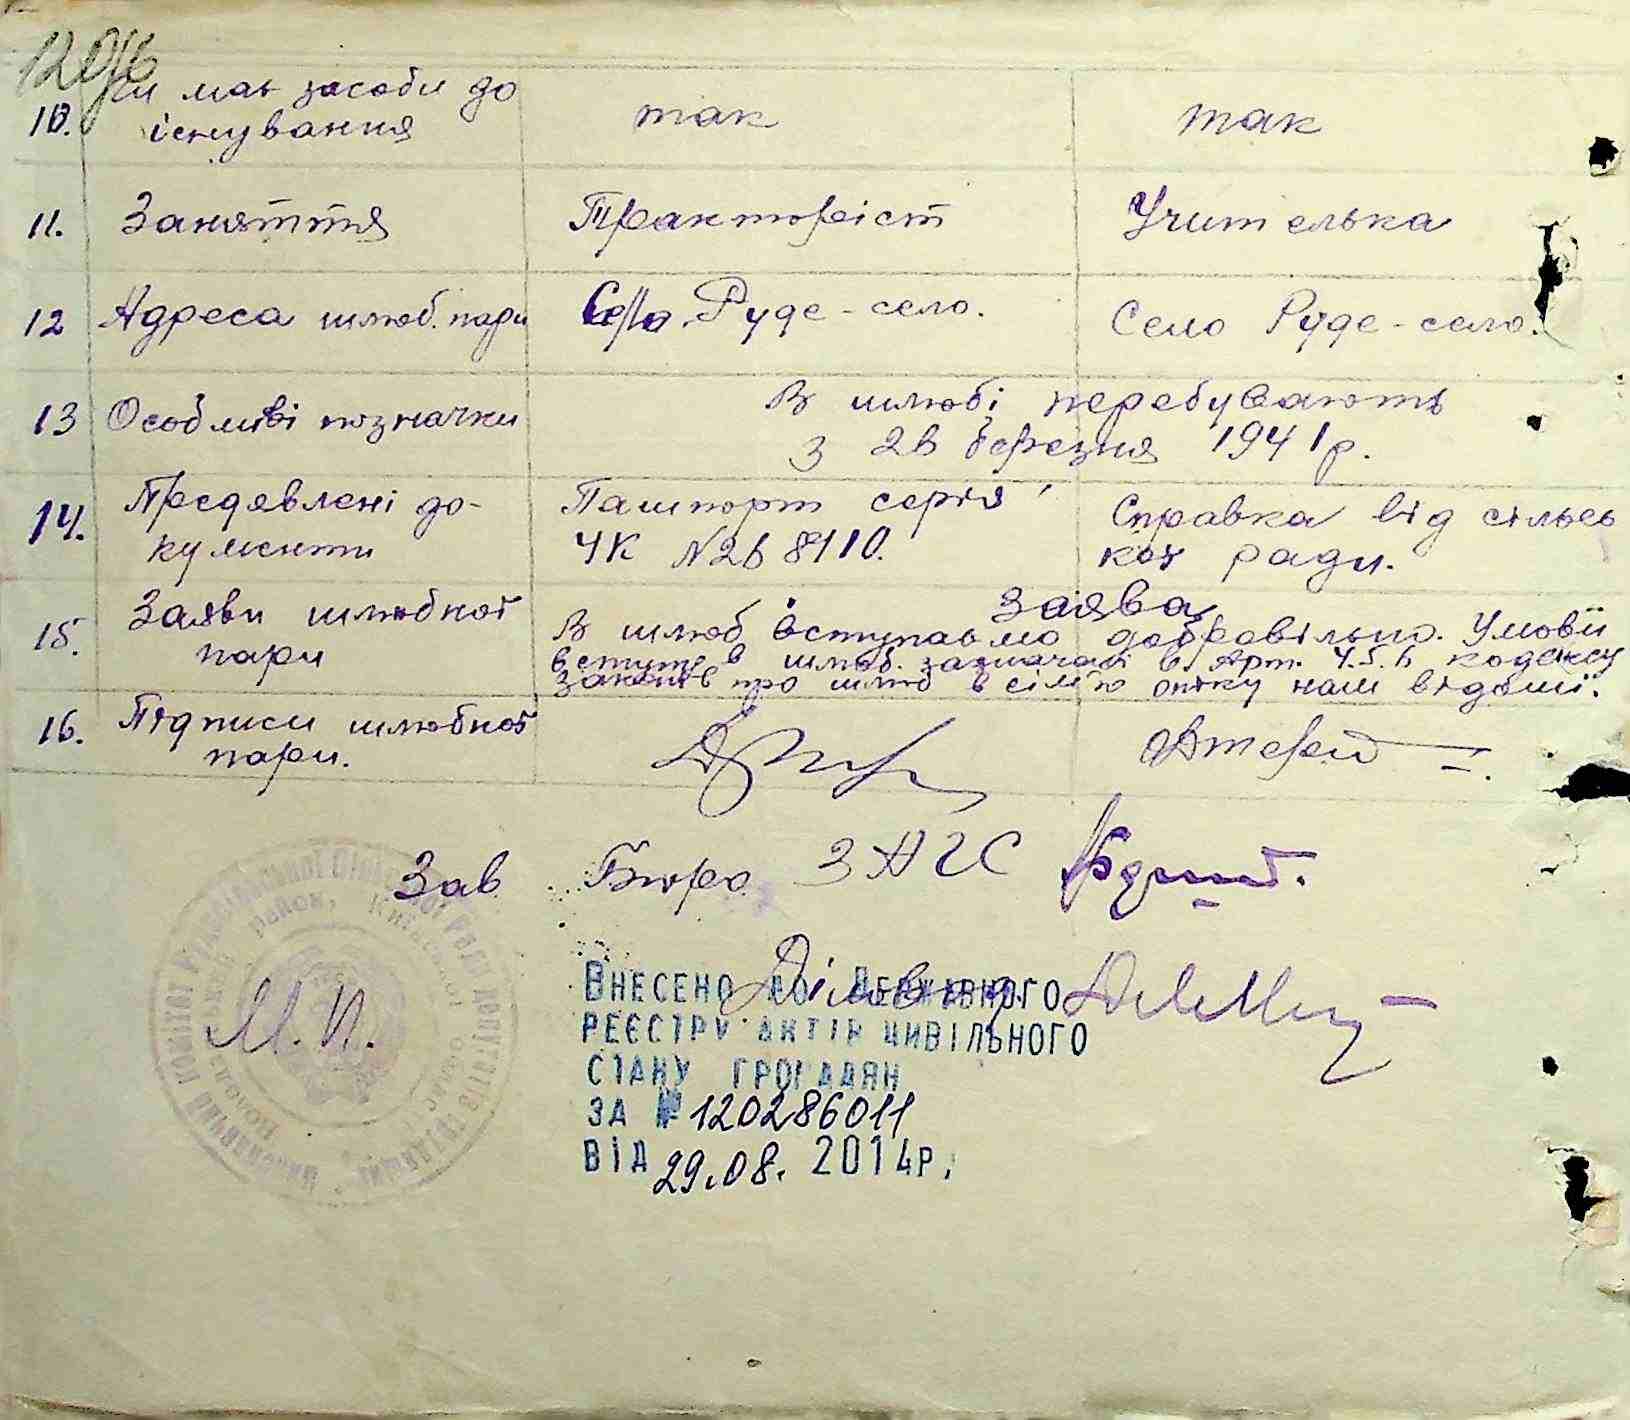 120
10. Чи має засоби до
існування
так
так
11. Заняття
Тракторіст
Учителька
12 Адреса шлюб. пари
Село Руде-село.
Село Руде-село.
13 Особливі позначки
В шлюбі перебувають
з 26 березня 1941 р.
14. Предявлені до-
кументи
Пашпорт серія
ЧК №268110.
Справка від сільсь
кої ради.
15. Заяви шлюбної
пари
Заява
В шлюб вступаємо добровільно. Умови
вступу в шлюб. зазначені в Арт. 4.5.6 кодексу
Законів про шлюб сім'ю опіку нам відомі.
16. Підписи шлюбної
пари.
Зав. Бюро ЗАГС
М.П.
Діловод
Внесено до Державного
реєстру актів цивільного
стану громадян
за № 120286011
від 29.08. 2014р.